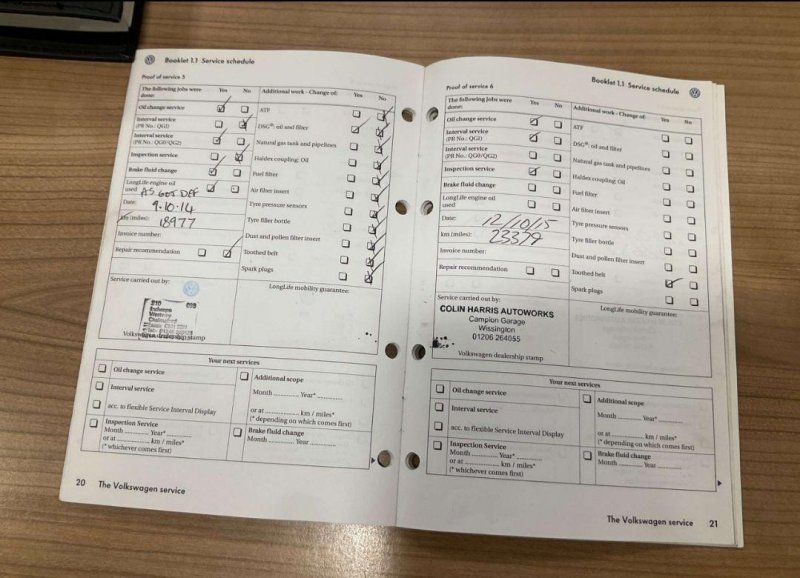 Booklet 1.1 Service schedule
Proof of service 5
The following jobs were done:
Yes
No
Oil change service
Interval service
(PR No.: QG1)
Interval service
(PR No.: QG0/QG2)
Inspection service
Brake fluid change
LongLife engine oil
used AS GO5 DEF
Date: 9.10.14
km (miles): 18977
Invoice number:
Repair recommendation
Additional work - Change of:
Yes
No
ATF
DSG®: oil and filter
Natural gas tank and pipelines
Haldex coupling: Oil
Fuel filter
Air filter insert
Tyre pressure sensors
Tyre filler bottle
Dust and pollen filter insert
Toothed belt
Spark plugs
Service carried out by:
LongLife mobility guarantee:
Volkswagen dealership stamp
Your next services
Oil change service
Interval service
acc. to flexible Service Interval Display
Inspection Service
Month ............ Year* ............
or at .................... km / miles*
(* whichever comes first)
Additional scope
Month ............ Year* ............
or at .................... km / miles*
(* depending on which comes first)
Brake fluid change
Month ............ Year ............
20 The Volkswagen service
Booklet 1.1 Service schedule
Proof of service 6
The following jobs were done:
Yes
No
Oil change service
Interval service
(PR No.: QG1)
Interval service
(PR No.: QG0/QG2)
Inspection service
Brake fluid change
LongLife engine oil
used
Date: 12/10/15
km (miles): 23379
Invoice number:
Repair recommendation
Additional work - Change of:
Yes
No
ATF
DSG®: oil and filter
Natural gas tank and pipelines
Haldex coupling: Oil
Fuel filter
Air filter insert
Tyre pressure sensors
Tyre filler bottle
Dust and pollen filter insert
Toothed belt
Spark plugs
Service carried out by:
COLIN HARRIS AUTOWORKS
Campion Garage
Wissington
01206 264055
Volkswagen dealership stamp
LongLife mobility guarantee:
Your next services
Oil change service
Interval service
acc. to flexible Service Interval Display
Inspection Service
Month ............ Year* ............
or at .................... km / miles*
(* whichever comes first)
Additional scope
Month ............ Year* ............
or at .................... km / miles*
(* depending on which comes first)
Brake fluid change
Month ............ Year ............
The Volkswagen service 21